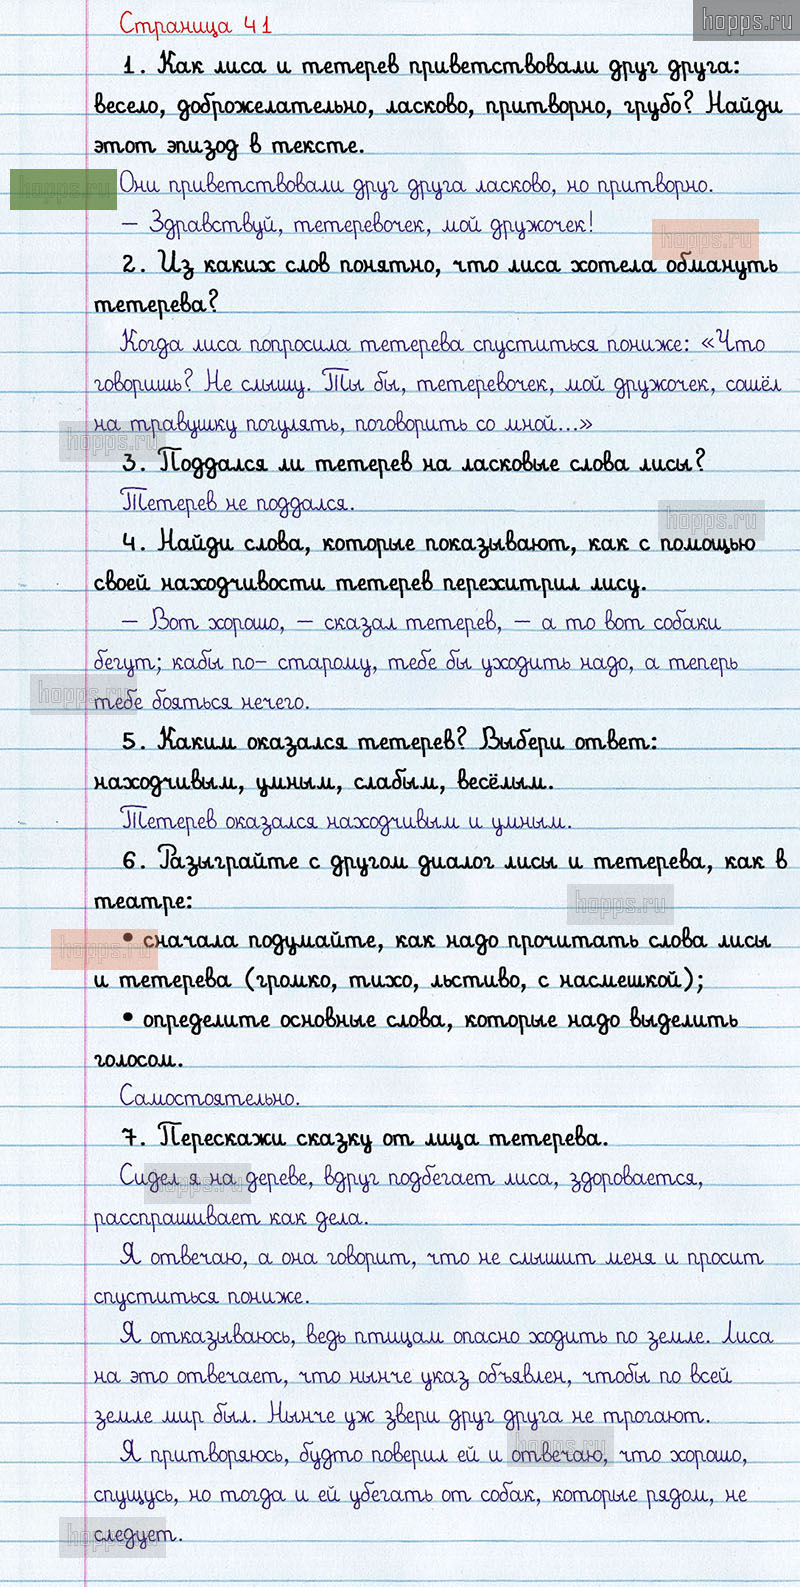 Страница 41
hopps.ru
1. Как лиса и тетерев приветствовали друг друга:
весело, доброжелательно, ласково, притворно, грубо? Найди
этот эпизод в тексте.
hopps.ru
Они приветствовали друг друга ласково, но притворно.
– Здравствуй, тетеревочек, мой дружочек!
hopps.ru
2. Из каких слов понятно, что лиса хотела обмануть
тетерева?
Когда лиса попросила тетерева спуститься пониже: «Что
говоришь? Не слышу. Ты бы, тетеревочек, мой дружочек, сошёл
на травушку погулять, поговорить со мной...»
hopps.ru
3. Поддался ли тетерев на ласковые слова лисы?
Тетерев не поддался.
hopps.ru
4. Найди слова, которые показывают, как с помощью
своей находчивости тетерев перехитрил лису.
– Вот хорошо, – сказал тетерев, – а то вот собаки
бегут; кабы по- старому, тебе бы уходить надо, а теперь
тебе бояться нечего.
hopps.ru
5. Каким оказался тетерев? Выбери ответ:
находчивым, умным, слабым, весёлым.
Тетерев оказался находчивым и умным.
6. Разыграйте с другом диалог лисы и тетерева, как в
театре:
hopps.ru
• сначала подумайте, как надо прочитать слова лисы
hopps.ru
и тетерева (громко, тихо, льстиво, с насмешкой);
• определите основные слова, которые надо выделить
голосом.
Самостоятельно.
7. Перескажи сказку от лица тетерева.
Сидел я на дереве, вдруг подбегает лиса, здоровается,
hopps.ru
расспрашивает как дела.
Я отвечаю, а она говорит, что не слышит меня и просит
спуститься пониже.
Я отказываюсь, ведь птицам опасно ходить по земле. Лиса
на это отвечает, что нынче указ объявлен, чтобы по всей
земле мир был. Нынче уж звери друг друга не трогают.
Я притворяюсь, будто поверил ей и отвечаю, что хорошо,
hopps.ru
спущусь, но тогда и ей убегать от собак, которые рядом, не
следует.
hopps.ru